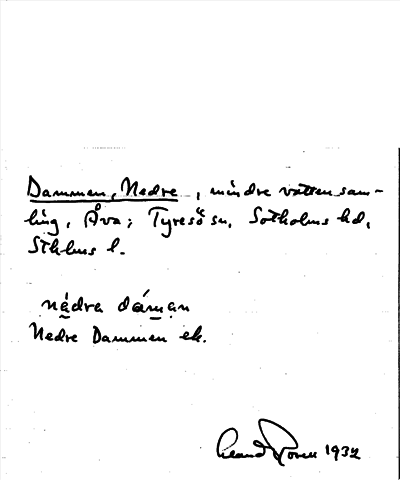 Dammen, Nedre, mindre vattensam-
ling, Åva; Tyresö sn, Sotholms hd,
Sthlms l.
nádra dáman
Nedre Dammen ek.
1932